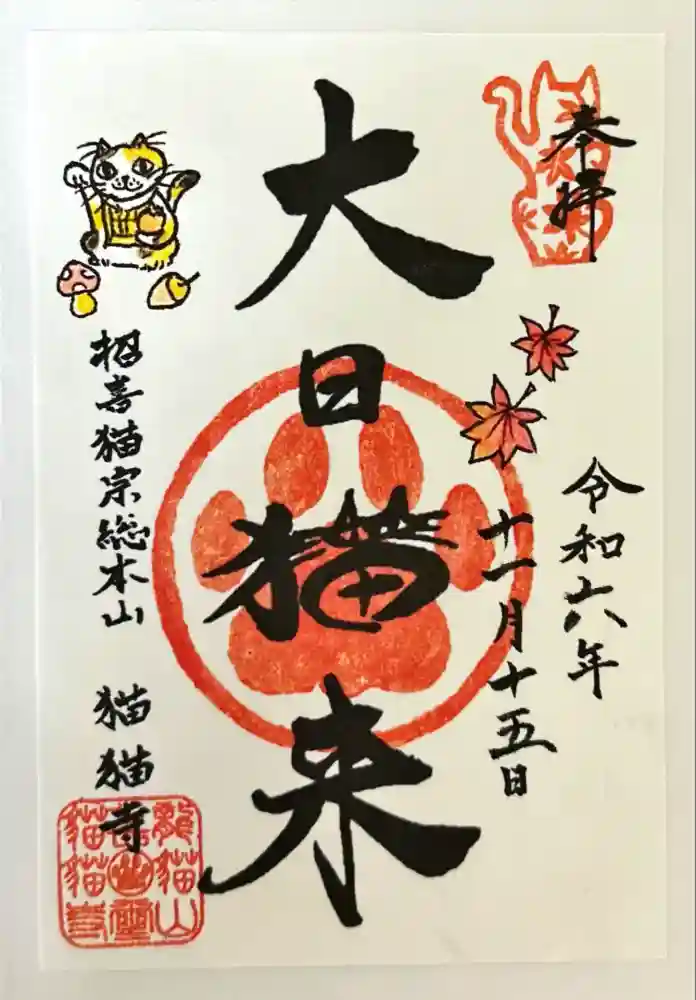 奉拝
令和六年
十一月十五日
大日猫来
招喜猫宗総本山
猫猫寺
龍猫山
猫猫寺